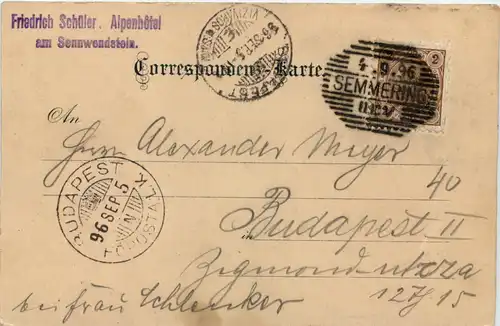 Friedrich Schüler. Alpenhôtel
am Sonnwendstein.
Correspondenz-Karte.
2
4.9.96
SEMMERING
An
Herrn Alexander Meyer
40
Budapest II
in
Zigmond-utcza
12/15
bei Frau Schlenker
BUDAPEST
96 SEP. 5